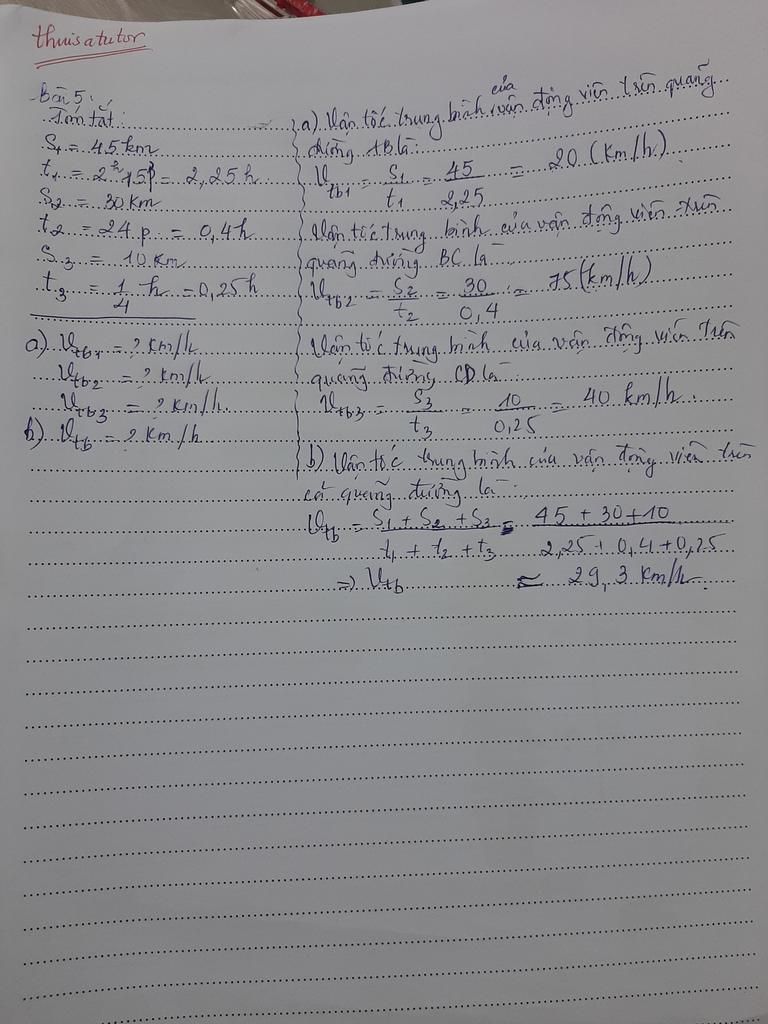 thuisatutor
Bài 5:
Tóm tắt:
S1 = 45 km
t1 = 2h15p = 2,25h
S2 = 30 km
t2 = 24p = 0,4h
S3 = 10 km
t3 = 1/4 h = 0,25h
a) Vtb1 = ? km/h
Vtb2 = ? km/h
Vtb3 = ? km/h.
b) Vtb = ? km/h
a) Vận tốc trung bình của vận động viên trên quãng
đường AB là:
Vtb1 = S1/t1 = 45/2,25 = 20 (km/h)
Vận tốc trung bình của vận động viên trên
quãng đường BC là
Vtb2 = S2/t2 = 30/0,4 = 75 (km/h)
Vận tốc trung bình của vận động viên trên
quãng đường CD là
Vtb3 = S3/t3 = 10/0,25 = 40 km/h.
b) Vận tốc trung bình của vận động viên trên
cả quãng đường là:
Vtb = S1 + S2 + S3 / t1 + t2 + t3 = 45 + 30 + 10 / 2,25 + 0,4 + 0,25
=> Vtb ≈ 29,3 km/h.